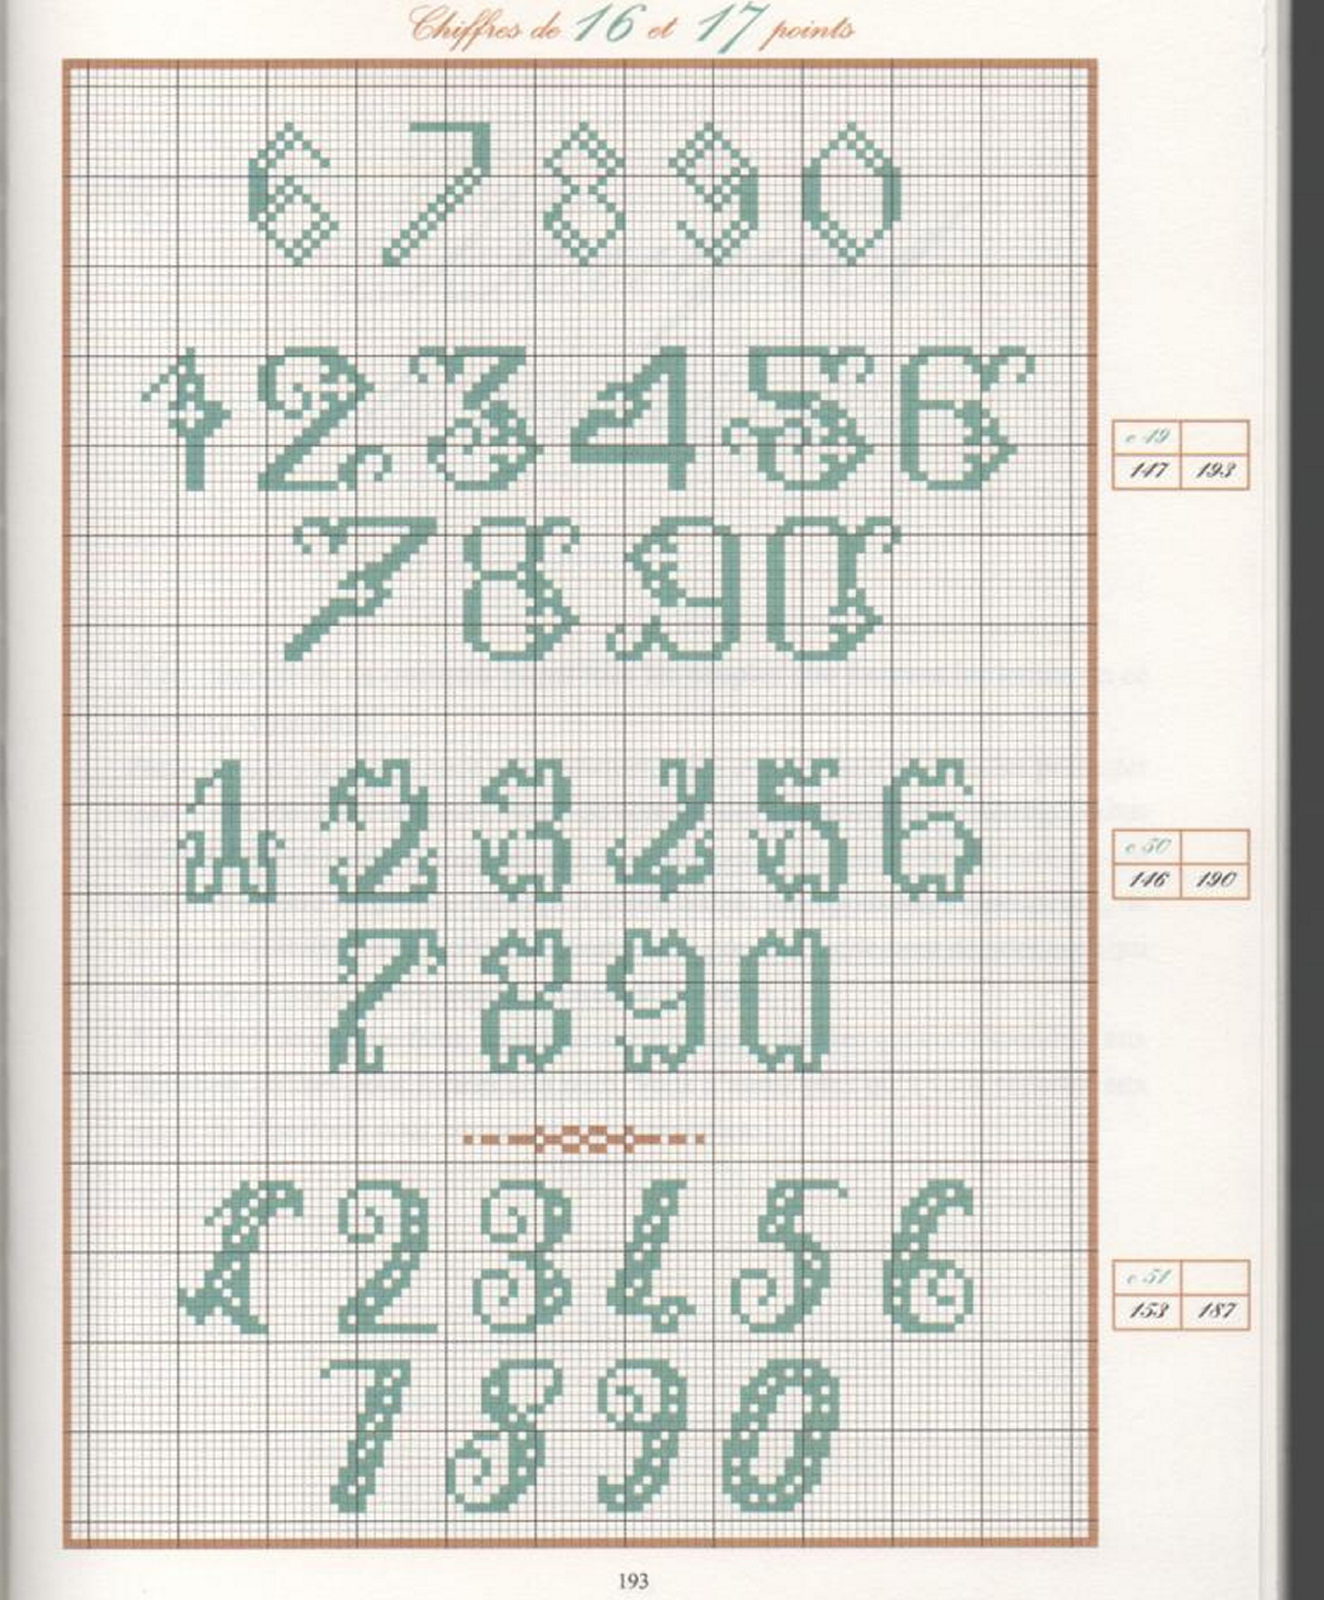 Chiffres de 16 et 17 points
6 7 8 9 0
1 2 3 4 5 6
c 49
147 193
7 8 9 0
1 2 3 4 5 6
c 50
146 190
7 8 9 0
1 2 3 4 5 6
c 51
153 187
7 8 9 0
193